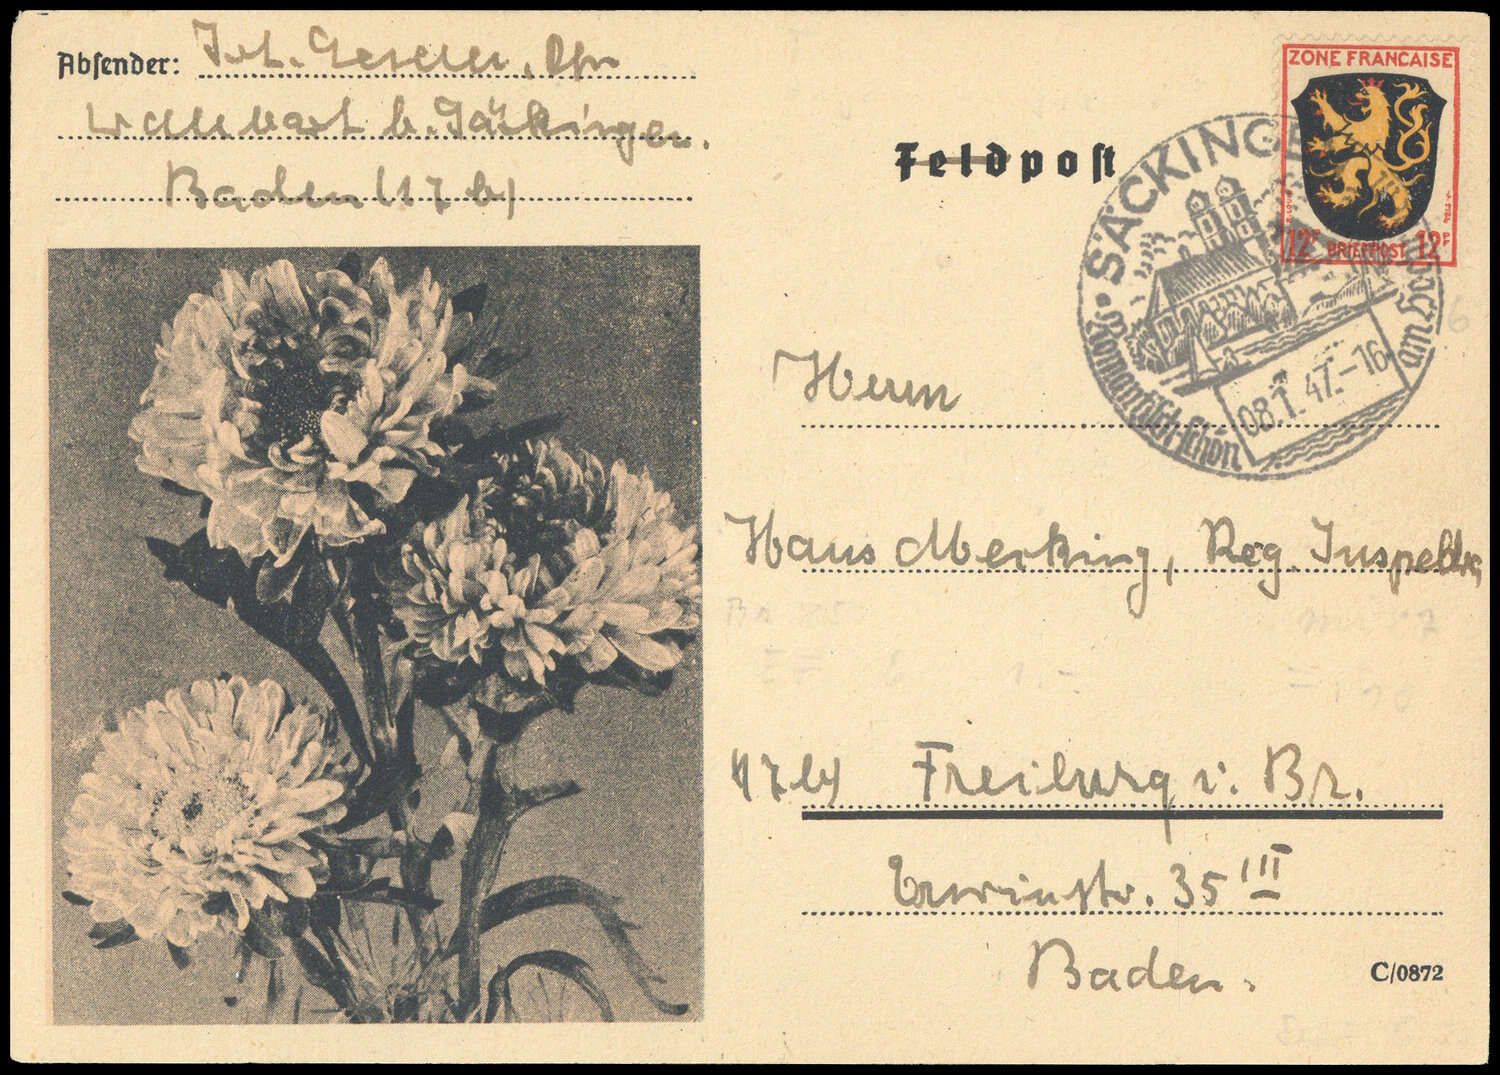 Absender: Jul. Geseller,
Wallbach b. Säckingen.
Baden (17b)
Feldpost
ZONE FRANCAISE
12P BRIEFPOST 12P
SÄCKINGEN
Romantisch-schön
am
08.1.47.-16
Herrn
Hans Merking, Reg. Inspektor
(17b) Freiburg i. Br.
Erwinstr. 35 III
Baden.
C/0872